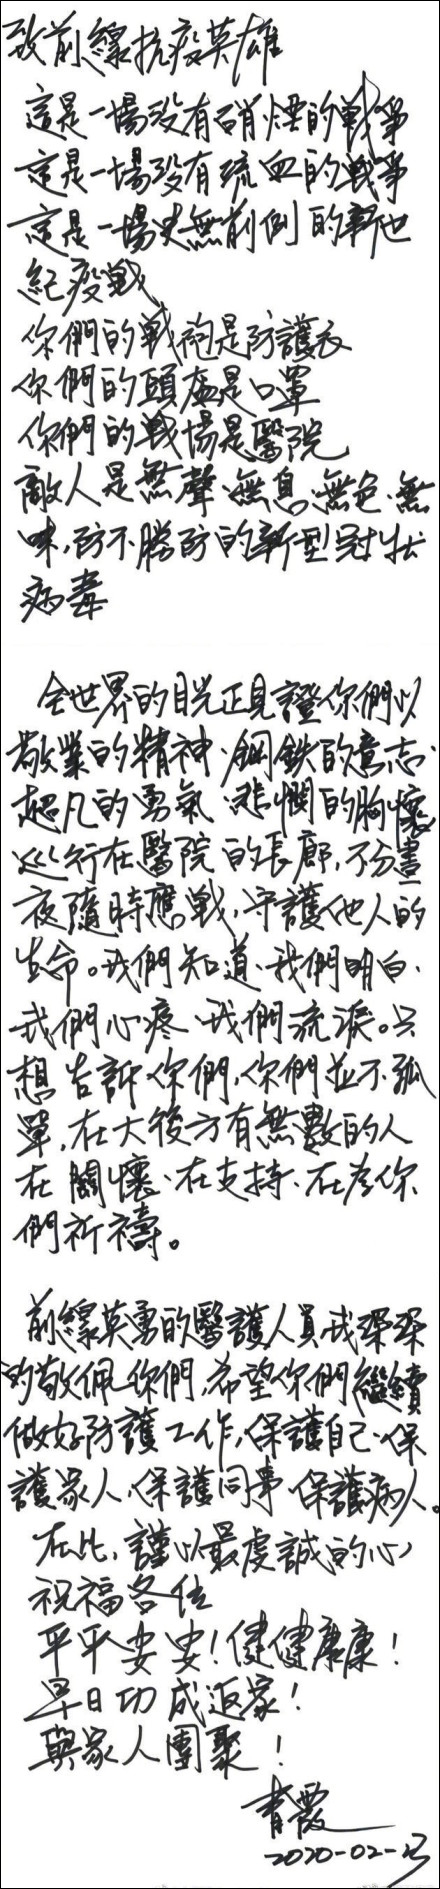 致前線抗疫英雄
這是一場沒有硝煙的戰爭
這是一場沒有流血的戰爭
這是一場史無前例的新世
紀疫戰
你們的戰袍是防護衣
你們的頭盔是口罩
你們的戰場是醫院
敵人是無聲、無息、無色、無
味，防不勝防的新型冠狀
病毒
全世界的目光正見證你們以
敬業的精神、鋼鉄的意志、
超凡的勇氣、悲憫的胸懷
巡行在醫院的長廊，不分晝
夜隨時應戰，守護他人的
生命。我們知道、我們明白、
我們心疼、我們流淚。只
想告訴你們，你們並不孤
單，在大後方有無數的人
在關懷、在支持、在為你
們祈禱。
前線英勇的醫護人員我深深
的敬佩你們，希望你們繼續
做好防護工作，保護自己、保
護家人、保護同事、保護病人。
在此，謹以最虔誠的心
祝福各位
平平安安！健健康康！
早日功成返家！
與家人團聚！
青霞
2020-02-